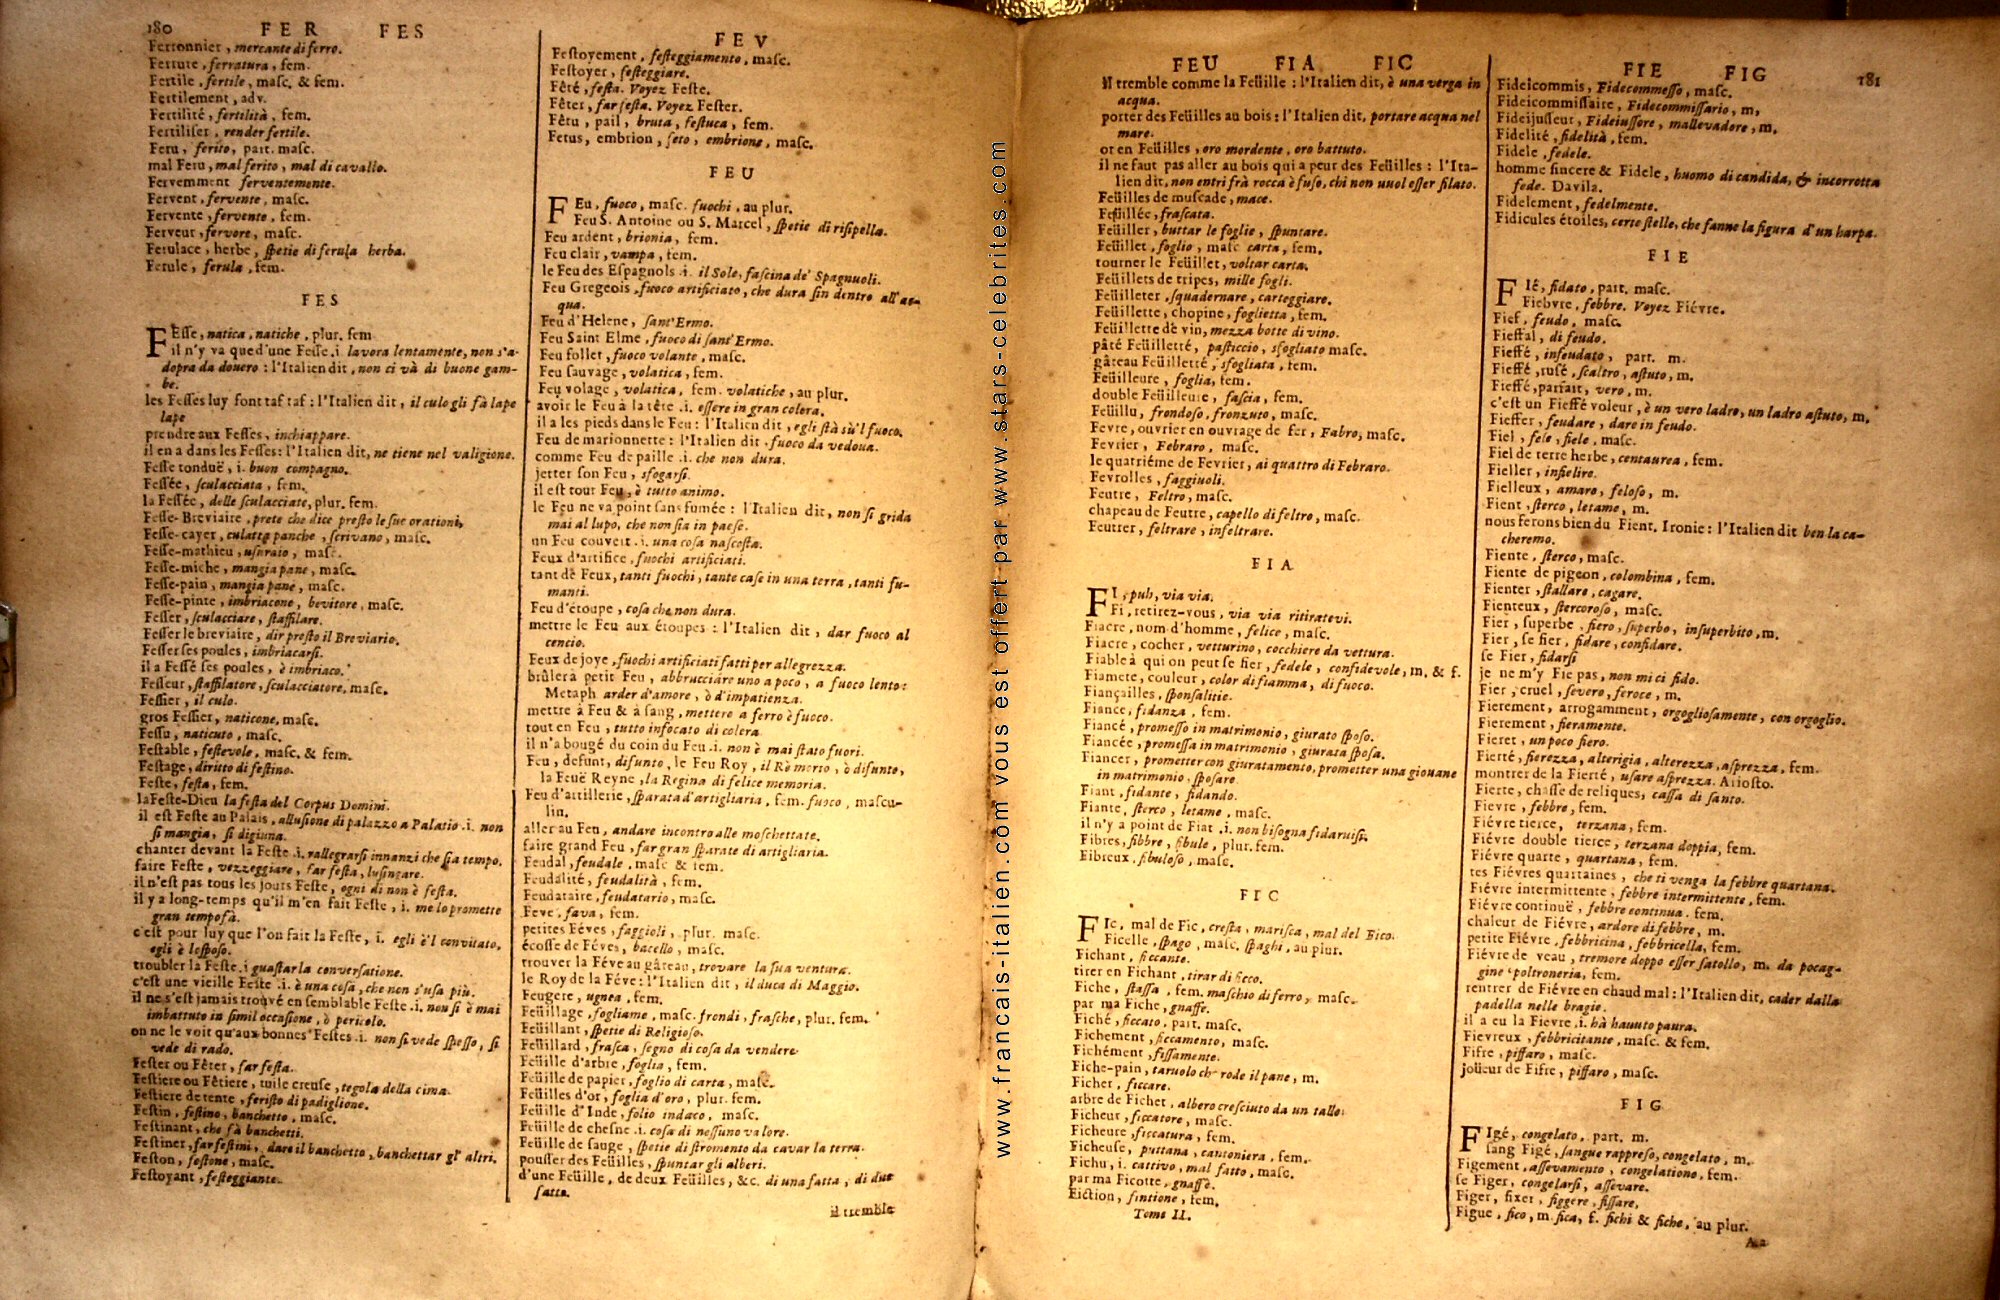 180
FER FES
Ferronnier, mercante di ferro.
Ferrure, ferratura, fem.
Fertile, fertile, masc. & fem.
Fertilement, adv.
Fertilité, fertilità, fem.
Fertiliser, render fertile.
Feru, ferito, part. masc.
mal Feru, mal ferito, mal di cavallo.
Fervemment ferventemente.
Fervent, fervente, masc.
Fervente, fervente, fem.
Ferveur, fervore, masc.
Ferulace, herbe, spetie di ferula herba.
Ferule, ferula, fem.
FES
FEsse, natica, natiche, plur. fem.
il n'y va que d'une Fesse .i. lavora lentamente, non s'a-
dopra da douero : l'Italien dit, non ci và di buone gam-
be.
les Fesses luy font taf taf : l'Italien dit, il culo gli fà lape
lape
prendre aux Fesses, inchiappare.
il en a dans les Fesses : l'Italien dit, ne tiene nel valigione.
Fesse tonduë, i. buon compagno.
Fessée, sculacciata, fem.
la Fessée, delle sculacciate, plur. fem.
Fesse-Breviaire, prete che dice presto le sue orationi,
Fesse-cayer, culatta panche, scrivano, masc.
Fesse-mathieu, usuraio, masc.
Fesse-miche, mangia pane, masc.
Fesse-pain, mangia pane, masc.
Fesse-pinte, imbriacone, bevitore, masc.
Fesser, sculacciare, staffilare.
Fesser le breviaire, dir presto il Breviario.
Fesser ses poules, imbriacarsi.
il a Fessé ses poules, è imbriaco.
Fesseur, staffilatore, sculacciatore, masc.
Fessier, il culo.
gros Fessier, naticone, masc.
Fessu, naticuto, masc.
Festable, festevole, masc. & fem.
Festage, diritto di festino.
Feste, festa, fem.
la Feste-Dieu la festa del Corpus Domini.
il est Feste au Palais, allusione di palazzo a Palatio .i. non
si mangia, si digiuna.
chanter devant la Feste .i. rallegrarsi innanzi che sia tempo.
faire Feste, vezzeggiare, far festa, lusingare.
il n'est pas tous les jours Feste, ogni dì non è festa.
il y a long-temps qu'il m'en fait Feste, i. me lo promette
gran tempo fà.
c'est pour luy que l'on fait la Feste, i. egli è'l convitato,
egli è lo sposo.
troubler la Feste .i guastar la conversatione.
c'est une vieille Feste .i. è una cosa, che non s'usa più.
il ne s'est jamais trouvé en semblable Feste .i. non si è mai
imbattuto in simil occasione, ò pericolo.
on ne le voit qu'aux bonnes Festes .i. non si vede spesso, si
vede di rado.
Fester ou Fêter, far festa.
Festiere ou Fêtiere, tuile creuse, tegola della cima.
Festiere de tente, feristo di padiglione.
Festin, festino, banchetto, masc.
Festinant, che fà banchetti.
Festiner, far festini, dare il banchetto, banchettar gl' altri.
Feston, festone, masc.
Festoyant, festeggiante.
FEV
Festoyement, festeggiamento, masc.
Festoyer, festeggiare.
Fêté, festa. Voyez Feste.
Fêter, far festa. Voyez Fester.
Fêtu, pail, bruta, festuca, fem.
Fetus, embrion, feto, embrione, masc.
FEU
FEu, fuoco, masc. fuochi, au plur.
Feu S. Antoine ou S. Marcel, spetie di risipella.
Feu ardent, brionia, fem.
Feu clair, vampa, fem.
le Feu des Espagnols .i. il Sole, fascina de' Spagnuoli.
Feu Gregeois, fuoco artificiato, che dura sin dentro all'ac-
qua.
Feu d'Helene, sant'Ermo.
Feu Saint Elme, fuoco di sant'Ermo.
Feu follet, fuoco volante, masc.
Feu sauvage, volatica, fem.
Feu volage, volatica, fem. volatiche, au plur.
avoir le Feu à la tête .i. essere in gran colera.
il a les pieds dans le Feu : l'Italien dit, egli stà sù'l fuoco.
Feu de marionnette : l'Italien dit, fuoco da vedoua.
comme Feu de paille .i. che non dura.
jetter son Feu, sfogarsi.
il est tout Feu, è tutto animo.
le Feu ne va point sans fumée : l'Italien dit, non si grida
mai al lupo, che non sia in paese.
un Feu couvert .i. una cosa nascosta.
Feux d'artifice, fuochi artificiati.
tant de Feux, tanti fuochi, tante case in una terra, tanti fu-
manti.
Feu d'étoupe, cosa che non dura.
mettre le Feu aux étoupes : l'Italien dit, dar fuoco al
cencio.
Feux de joye, fuochi artificiati fatti per allegrezza.
brûler à petit Feu, abbrucciare uno a poco, a fuoco lento :
Metaph arder d'amore, ò d'impatienza.
mettre à Feu & à sang, mettere a ferro è fuoco.
tout en Feu, tutto infocato di colera
il n'a bougé du coin du Feu .i. non è mai stato fuori.
Feu, defunt, difunto, le Feu Roy, il Rè morto, ò difunto,
la Feuë Reyne, la Regina di felice memoria.
Feu d'artillerie, sparata d'artigliaria, fem. fuoco, mascu-
lin.
aller au Feu, andare incontro alle moschettate.
faire grand Feu, far gran sparate di artigliaria.
Feudal, feudale, masc & fem.
Feudalité, feudalità, fem.
Feudataire, feudatario, masc.
Feve, fava, fem.
petites Féves, faggioli, plur. masc.
écosse de Féves, bacello, masc.
trouver la Féve au gâteau, trovare la sua ventura.
le Roy de la Féve : l'Italien dit, il duca di Maggio.
Feugere, ugnea, fem.
Feüillage, fogliame, masc. frondi, frasche, plur. fem.
Feüillant, spetie di Religioso.
Feüillard, frasca, segno di cosa da vendere
Feüille d'arbre, foglia, fem.
Feüille de papier, foglio di carta, masc.
Feüilles d'or, foglia d'oro, plur. fem.
Feüille d'Inde, folio indaco, masc.
Feüille de chesne .i. cosa di nessuno valore.
Feüille de sauge, spetie di stromento da cavar la terra.
pousser des Feüilles, spuntar gli alberi.
d'une Feüille, de deux Feüilles, &c. di una fatta, di due
fatte.
il tremble
www.francais-italien.com vous est offert par www.stars-celebrites.com
FEU FIA FIC
Il tremble comme la Feüille : l'Italien dit, è una verga in
acqua.
porter des Feüilles au bois : l'Italien dit, portare acqua nel
mare.
or en Feüilles, oro mordente, oro battuto.
il ne faut pas aller au bois qui a peur des Feüilles : l'Ita-
lien dit, non entri frà rocca è fuso, chi non uuol esser filato.
Feüilles de muscade, mace.
Feüillée, frascata.
Feüiller, buttar le foglie, spuntare.
Feüillet, foglio, masc carta, fem.
tourner le Feüillet, voltar carta.
Feüillets de tripes, mille fogli.
Feüilleter, squadernare, carteggiare.
Feüillette, chopine, foglietta, fem.
Feüillette de vin, mezza botte di vino.
pâté Feüilletté, pasticcio, sfogliato masc.
gâteau Feüilletté, sfogliata, fem.
Feüilleure, foglia, fem.
double Feüilleure, fascia, fem.
Feüillu, frondoso, fronzuto, masc.
Fevre, ouvrier en ouvrage de fer, Fabro, masc.
Fevrier, Febraro, masc.
le quatriéme de Fevrier, ai quattro di Febraro.
Fevrolles, faggiuoli.
Feutre, Feltro, masc.
chapeau de Feutre, capello di feltro, masc.
Feutrer, feltrare, infeltrare.
FIA
FI, puh, via via.
Fi, retirez-vous, via via ritiratevi.
Fiacre, nom d'homme, felice, masc.
Fiacre, cocher, vetturino, cocchiere da vettura.
Fiable à qui on peut se fier, fedele, confidevole, m. & f.
Fiamete, couleur, color di fiamma, di fuoco.
Fiançailles, sponsalitie.
Fiance, fidanza, fem.
Fiancé, promesso in matrimonio, giurato sposo.
Fiancée, promessa in matrimonio, giurata sposa.
Fiancer, prometter con giuratamento, prometter una giouane
in matrimonio, sposare
Fiant, fidante, fidando.
Fiante, sterco, letame, masc.
il n'y a point de Fiat .i. non bisogna fidaruisi.
Fibres, fibbre, fibule, plur. fem.
Fibreux, fibuloso, masc.
FIC
FIc, mal de Fic, cresta, marisca, mal del Fico.
Ficelle, spago, masc. spaghi, au plur.
Fichant, ficcante.
tirer en Fichant, tirar di ficco.
Fiche, staffa, fem. maschio di ferro, masc.
par ma Fiche, gnaffe.
Fiché, ficcato, part. masc.
Fichement, ficcamento, masc.
Fichément, fissamente.
Fiche-pain, taruolo che rode il pane, m.
Ficher, ficcare.
arbre de Fichet, albero cresciuto da un tallo.
Ficheur, ficcatore, masc.
Ficheure, ficcatura, fem.
Ficheuse, puttana, cantoniera, fem.
Fichu, i. cattivo, mal fatto, masc.
par ma Ficotte, gnaffe.
Fiction, fintione, fem.
Tome II.
FIE FIG
181
Fideicommis, Fidecommesso, masc.
Fideicommissaire, Fidecommissario, m,
Fideijusseur, Fideiussore, mallevadore, m.
Fidelité, fidelità, fem.
Fidele, fedele.
homme sincere & Fidele, huomo di candida, & incorrotta
fede. Davila.
Fidelement, fedelmente.
Fidicules étoiles, certe stelle, che fanno la figura d'un harpa.
FIE
FIé, fidato, part. masc.
Fiebvre, febbre. Voyez Fiévre.
Fief, feudo, masc.
Fieffal, di feudo.
Fieffé, infeudato, part. m.
Fieffé, rusé, scaltro, astuto, m.
Fieffé, parfait, vero, m.
c'est un Fieffé voleur, è un vero ladro, un ladro astuto, m.
Fieffer, feudare, dare in feudo.
Fiel, fele, fiele, masc.
Fiel de terre herbe, centaurea, fem.
Fieller, infielire.
Fielleux, amaro, feloso, m.
Fient, sterco, letame, m.
nous ferons bien du Fient, Ironie : l'Italien dit ben la ca-
cheremo.
Fiente, sterco, masc.
Fiente de pigeon, colombina, fem.
Fienter, stallare, cagare.
Fienteux, stercoroso, masc.
Fier, superbe, fiero, superbo, insuperbito, m.
Fier, se fier, fidare, confidare.
se Fier, fidarsi
je ne m'y Fie pas, non mi ci fido.
Fier, cruel, severo, feroce, m.
Fierement, arrogamment, orgogliosamente, con orgoglio.
Fierement, fieramente.
Fieret, un poco fiero.
Fierté, fierezza, alterigia, alterezza, asprezza, fem.
montrer de la Fierté, usare asprezza. Ariosto.
Fierte, chasse de reliques, cassa di santo.
Fievre, febbre, fem.
Fiévre tierce, terzana, fem.
Fiévre double tierce, terzana doppia, fem.
Fiévre quarte, quartana, fem.
tes Fiévres quartaines, che ti venga la febbre quartana.
Fiévre intermittente, febbre intermittente, fem.
Fiévre continuë, febbre continua. fem.
chaleur de Fiévre, ardore di febbre, m.
petite Fiévre, febbricina, febbricella, fem.
Fiévre de veau, tremore doppo esser satollo, m. da pocag-
gine poltroneria, fem.
rentrer de Fiévre en chaud mal : l'Italien dit, cader dalla
padella nelle bragie.
il a eu la Fievre .i. hà hauuto paura.
Fievreux, febbricitante, masc. & fem.
Fifre, piffaro, masc.
joüeur de Fifre, piffaro, masc.
FIG
FIgé, congelato, part. m.
sang Figé, sangue rappreso, congelato, m.
Figement, assevamento, congelatione, fem.
se Figer, congelarsi, assevare.
Figer, fixer, figgere, fissare,
Figue, fico, m. fica, f. fichi & fiche, au plur.
Aa